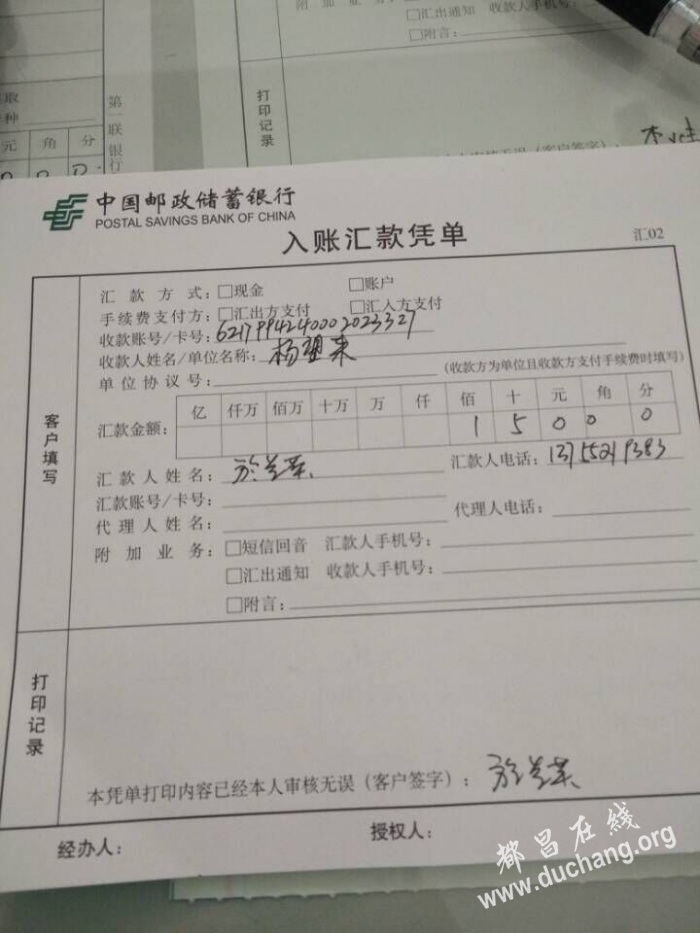 附 加 业 务:
□汇出通知 收款人手机号:
□附言:
打印记录
元 角 分
第一联 银行
中国邮政储蓄银行
POSTAL SAVINGS BANK OF CHINA
入账汇款凭单
汇02
客户填写
汇 款 方 式:□现金 □账户
手续费支付方:□汇出方支付 □汇入方支付
收款账号/卡号:6217994240002023327
收款人姓名/单位名称:
单 位 协 议 号: (收款方为单位且收款方支付手续费时填写)
亿 仟万 佰万 十万 万 仟 佰 十 元 角 分
汇款金额: 1 5 0 0 0
汇 款 人 姓 名: 汇款人电话:
汇款账号/卡号:
代 理 人 姓 名: 代理人电话:
附 加 业 务:□短信回音 汇款人手机号:
□汇出通知 收款人手机号:
□附言:
打印记录
本凭单打印内容已经本人审核无误(客户签字):
经办人: 授权人:
都昌在线
www.duchang.org